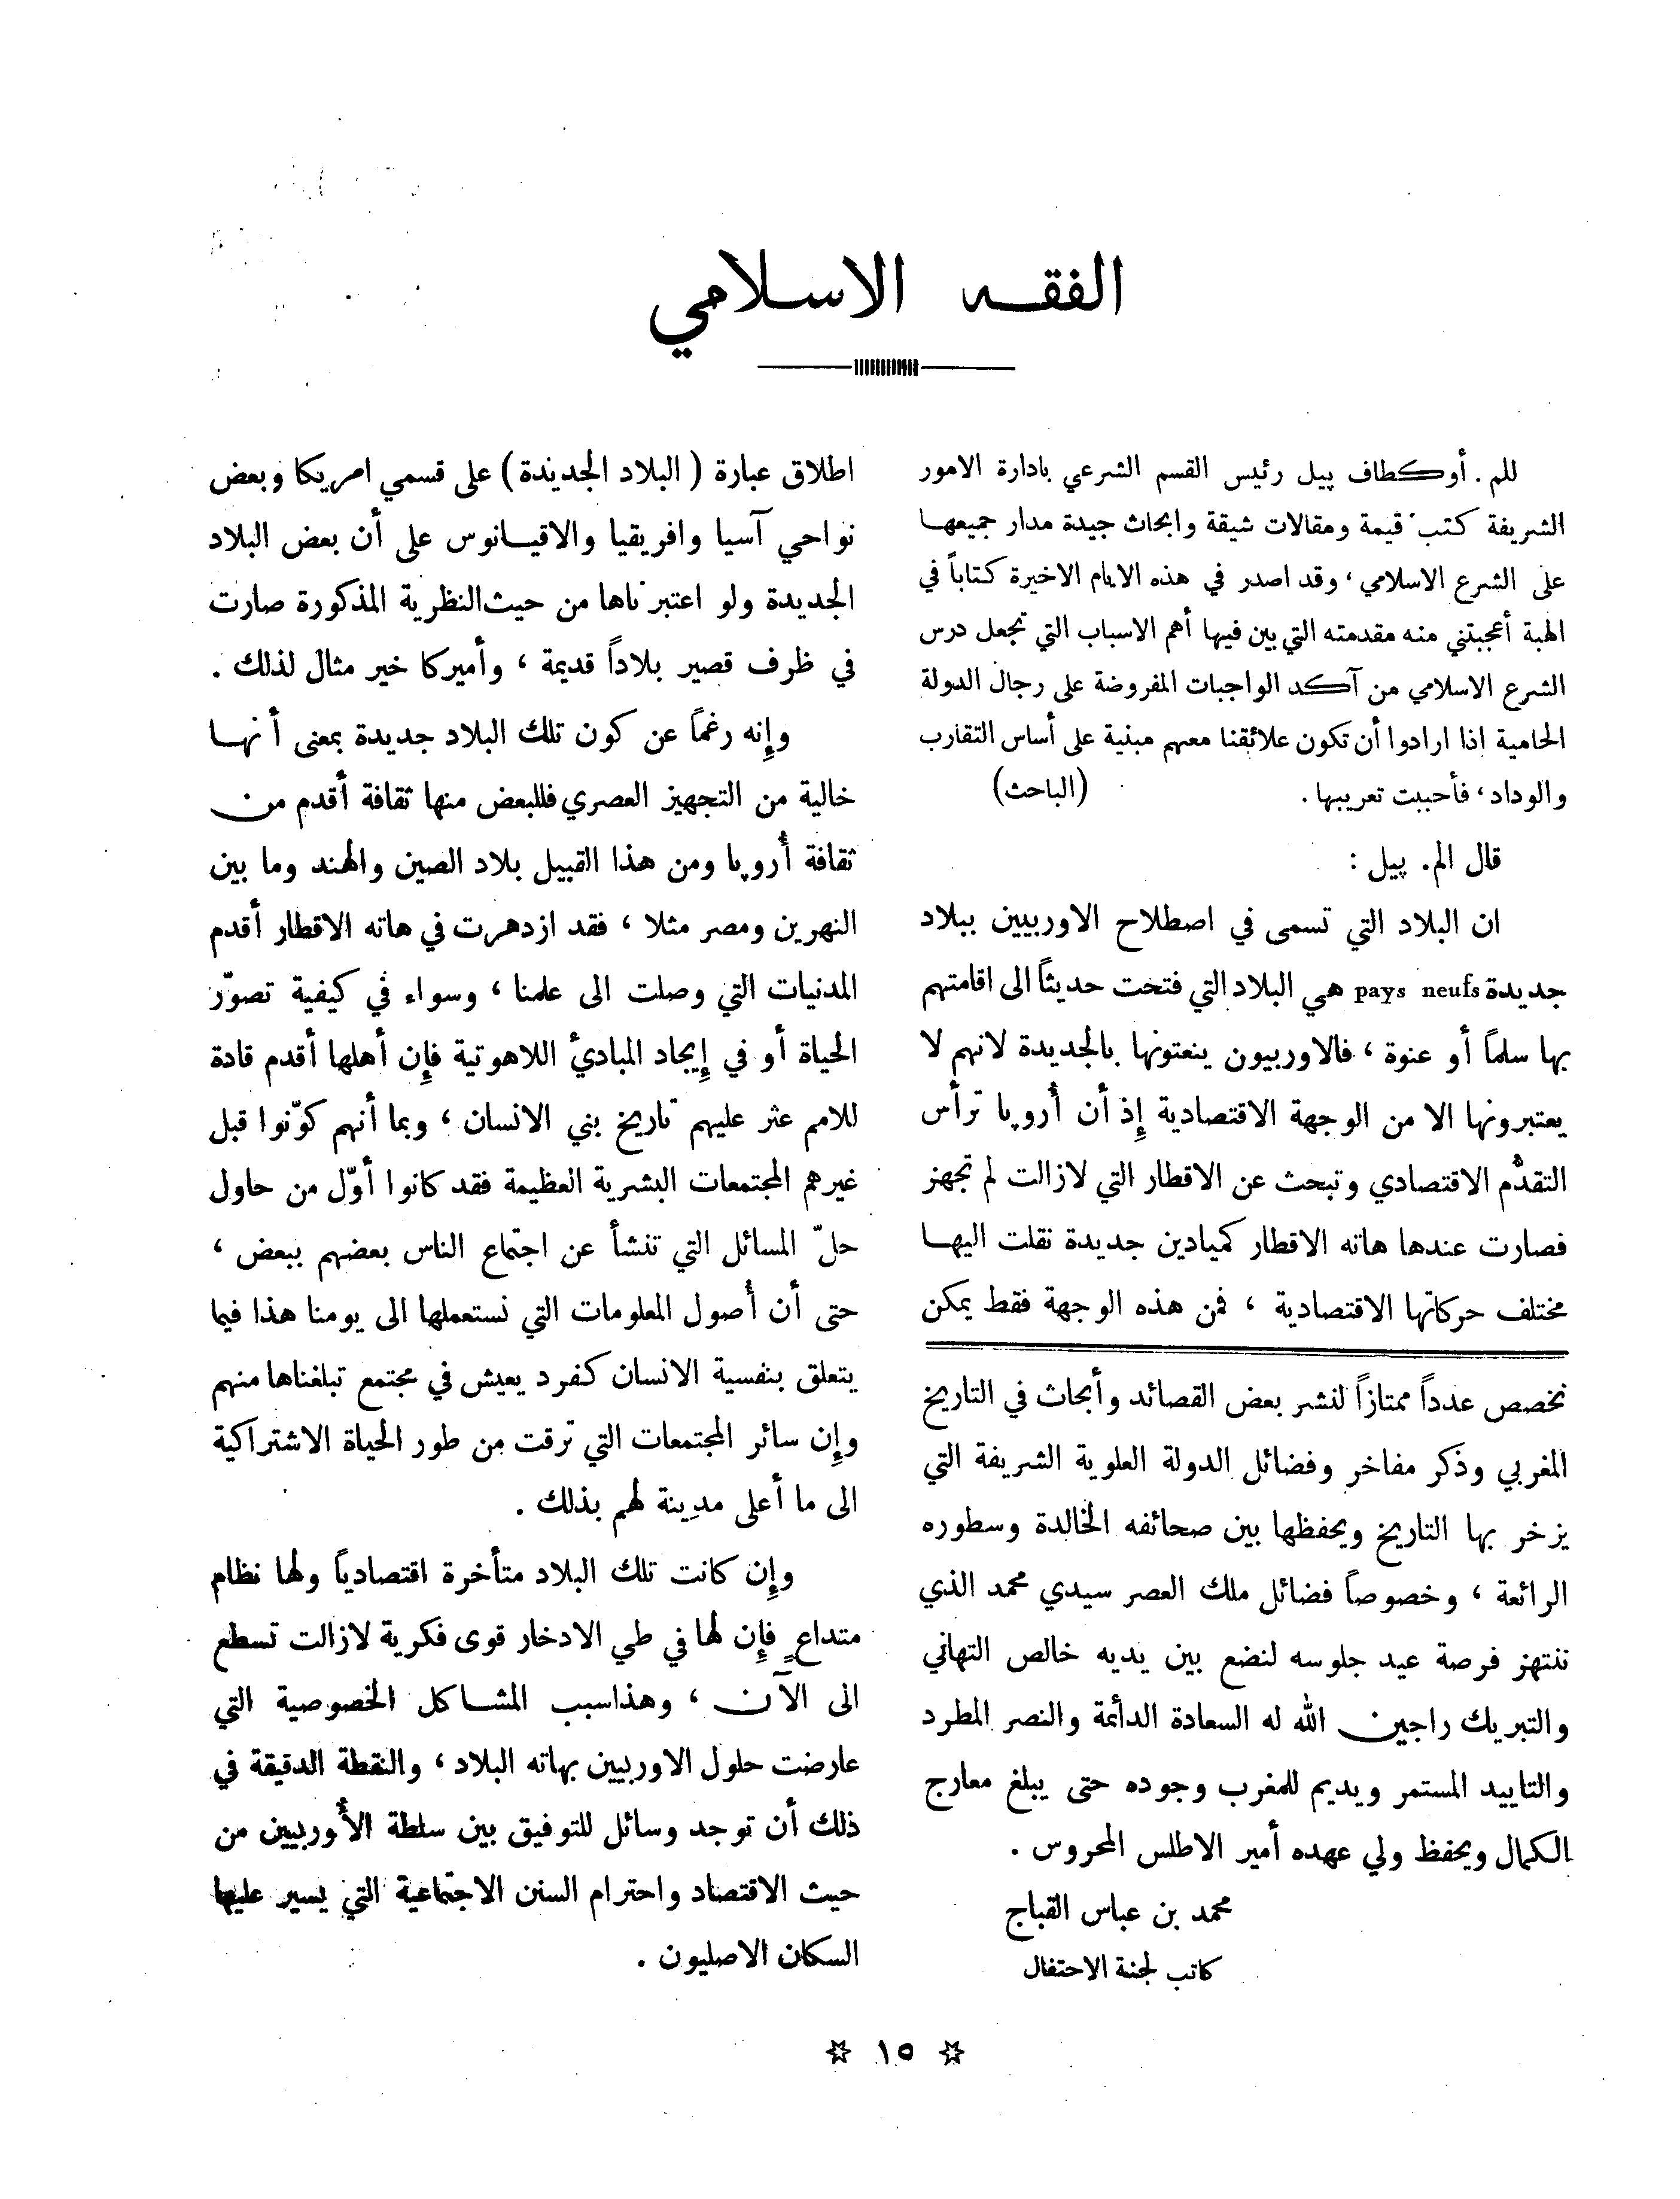 الفقه الاسلامي
للم . أوكطاف پيل رئيس القسم الشرعي بادارة الامور
الشريفة كتب قيمة ومقالات شيقة وابحاث جيدة مدار جميعها
على الشرع الاسلامي ، وقد اصدر في هذه الايام الاخيرة كتاباً في
الهبة أعجبتني منه مقدمته التي بين فيها أهم الاسباب التي تجعل درس
الشرع الاسلامي من آكد الواجبات المفروضة على رجال الدولة
الحامية اذا ارادوا أن تكون علائقنا معهم مبنية على أساس التقارب
والوداد ، فأحببت تعريبها . (الباحث)
قال الم . پيل :
ان البلاد التي تسمى في اصطلاح الاوربيين ببلاد
جديدة pays neufs هي البلاد التي فتحت حديثاً الى اقامتهم
بها سلماً أو عنوة ، فالاوربيون ينعتونها بالجديدة لانهم لا
يعتبرونها الا من الوجهة الاقتصادية إِذ أن أُروپا ترأس
التقدُّم الاقتصادي وتبحث عن الاقطار التي لازالت لم تجهز
فصارت عندها هاته الاقطار كميادين جديدة نقلت اليها
مختلف حركاتها الاقتصادية ، فمن هذه الوجهة فقط يمكن
اطلاق عبارة ( البلاد الجديدة ) على قسمي امريكا وبعض
نواحي آسيا وافريقيا والاقيانوس على أن بعض البلاد
الجديدة ولو اعتبرناها من حيث النظرية المذكورة صارت
في ظرف قصير بلاداً قديمة ، وأميركا خير مثال لذلك .
وإِنه رغماً عن كون تلك البلاد جديدة بمعنى أنها
خالية من التجهيز العصري فللبعض منها ثقافة أقدم من
ثقافة أُروپا ومن هذا القبيل بلاد الصين والهند وما بين
النهرين ومصر مثلا ، فقد ازدهرت في هاته الاقطار أقدم
المدنيات التي وصلت الى علمنا ، وسواء في كيفية تصوّر
الحياة أو في إِيجاد المبادئ اللاهوتية فإِن أهلها أقدم قادة
للامم عثر عليهم تاريخ بني الانسان ، وبما أنهم كوّنوا قبل
غيرهم المجتمعات البشرية العظيمة فقد كانوا أوّل من حاول
حلّ المسائل التي تنشأ عن اجتماع الناس بعضهم ببعض ،
حتى أن أُصول المعلومات التي نستعملها الى يومنا هذا فيما
يتعلق بنفسية الانسان كفرد يعيش في مجتمع تبلغناها منهم
وإِن سائر المجتمعات التي ترقت من طور الحياة الاشتراكية
الى ما أعلى مدينة لهم بذلك .
وإِن كانت تلك البلاد متأخرة اقتصادياً ولها نظام
متداعٍ فإِن لها في طي الادخار قوى فكرية لازالت تسطع
الى الآن ، وهذا سبب المشاكل الخصوصية التي
عارضت حلول الاوربيين بهاته البلاد ، والنقطة الدقيقة في
ذلك أن توجد وسائل للتوفيق بين سلطة الأُوربيين من
حيث الاقتصاد واحترام السنن الاجتماعية التي يسير عليها
السكان الاصليون .
نخصص عدداً ممتازاً لنشر بعض القصائد وأبحاث في التاريخ
المغربي وذكر مفاخر وفضائل الدولة العلوية الشريفة التي
يزخر بها التاريخ ويحفظها بين صحائفه الخالدة وسطوره
الرائعة ، وخصوصاً فضائل ملك العصر سيدي محمد الذي
ننتهز فرصة عيد جلوسه لنضع بين يديه خالص التهاني
والتبريك راجين الله له السعادة الدائمة والنصر المطرد
والتاييد المستمر ويديم للمغرب وجوده حتى يبلغ معارج
الكمال ويحفظ ولي عهده أمير الاطلس المحروس .
محمد بن عباس القباج
كاتب لجنة الاحتفال
١٥